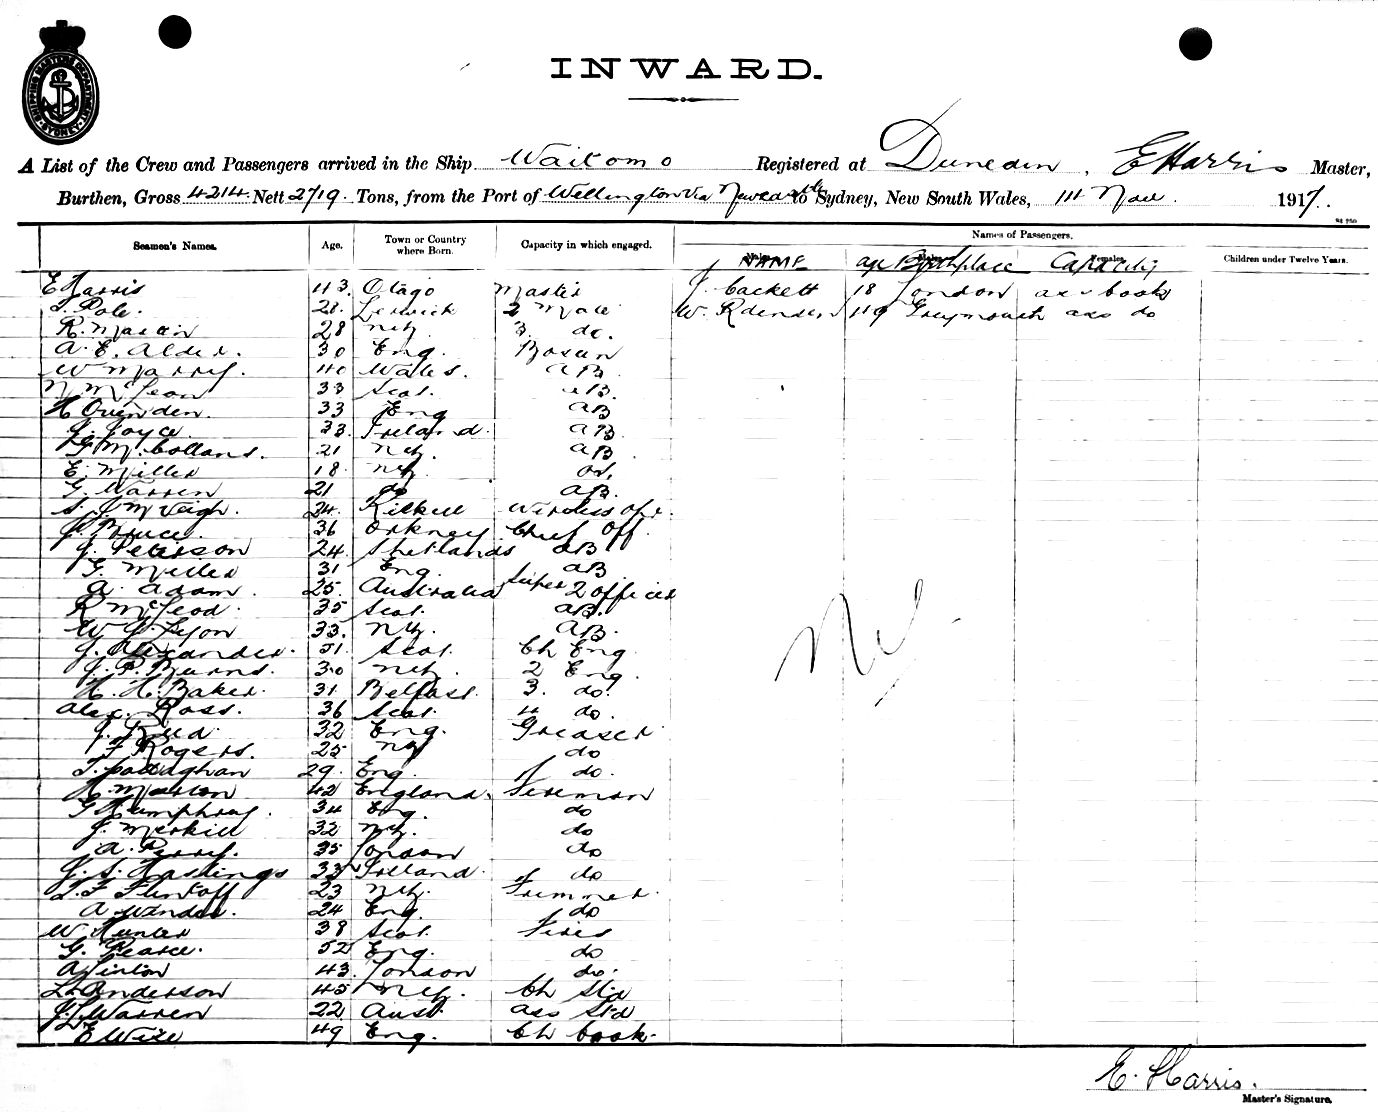 SHIPPING MASTERS DEPARTMENT
SYDNEY
INWARD.
A List of the Crew and Passengers arrived in the Ship Waitomo Registered at Dunedin, E Harris Master,
Burthen, Gross 4214 Nett 2719 Tons, from the Port of Wellington via Newcastle to Sydney, New South Wales, 1917.
Seamen's Names. Age. Town or Country where Born. Capacity in which engaged. Names of Passengers.
NAME age Birthplace Capacity Children under Twelve Years.
E Harris 43. Otago Master J. Cackett 18 London ass cook
T. Pole. 28. Lerwick 2 Mate W. Greymouth ass do
R. Martin 28 NZ 3. do.
A. E. Alder. 30 Eng. Bosun
W 40 Wales. AB.
N McLean 33 Scot. AB.
H Ovenden. 33 Eng AB
J. Joyce 33. Ireland. AB
21 NZ. AB
E. Miller 18. NZ. os.
G. Warren 21 do AB.
S. J. McVeigh. 24. Wireless opr.
J. Bruce. 36 Orkney Chief Off.
J. Peterson 24. Shetlands AB
G. Miller 31 Eng. AB
A. Adam. 25. Australia Super 2 officer
R McLeod. 35 Scot. AB.
W. J. Lyon 33. NZ. AB.
J. Alexander. 51. Scot. Ch Eng
J. P. Burns. 30 NZ. 2 Eng.
H. H. Baker. 31 Belfast. 3. do.
Alex. Ross. 36 Scot. 4 do.
J. 32 Eng. Greaser.
F Rogers. 25 NZ do
T. Callaghan 29. Eng. do.
H. 42 England. Fireman
G Humphrey. 34 Eng. do
J. 32 NZ. do
A. Perry. 35 London do
J. S. Hastings 33 Ireland. do
T. F Flintoff 23 NZ. Trimmer.
A 24 Eng. do
W. Hunter 38 Scot. Fires
G. Pearce. 52 Eng. do
A Linton 43. London do.
L. Anderson 45 NZ. Ch Std
J. L Warren 22. Aust. ass Std
E Wise 49 Eng. Ch Cook.
E. Harris.
Master's Signature.